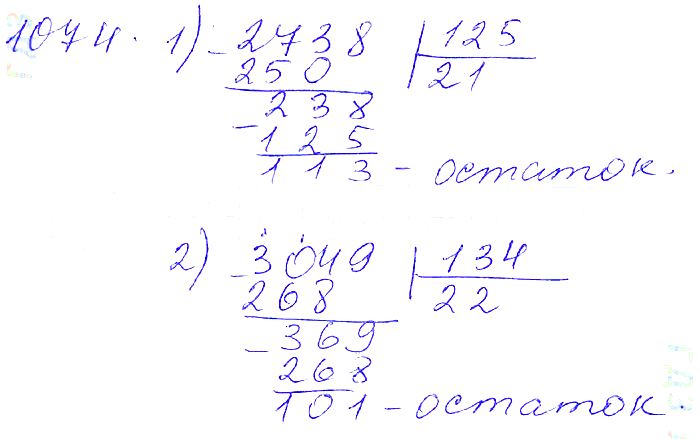 1074. 1) - 2738 | 125
250 21
- 238
125
113 - остаток.
2) - 3049 | 134
268 22
- 369
268
101 - остаток.